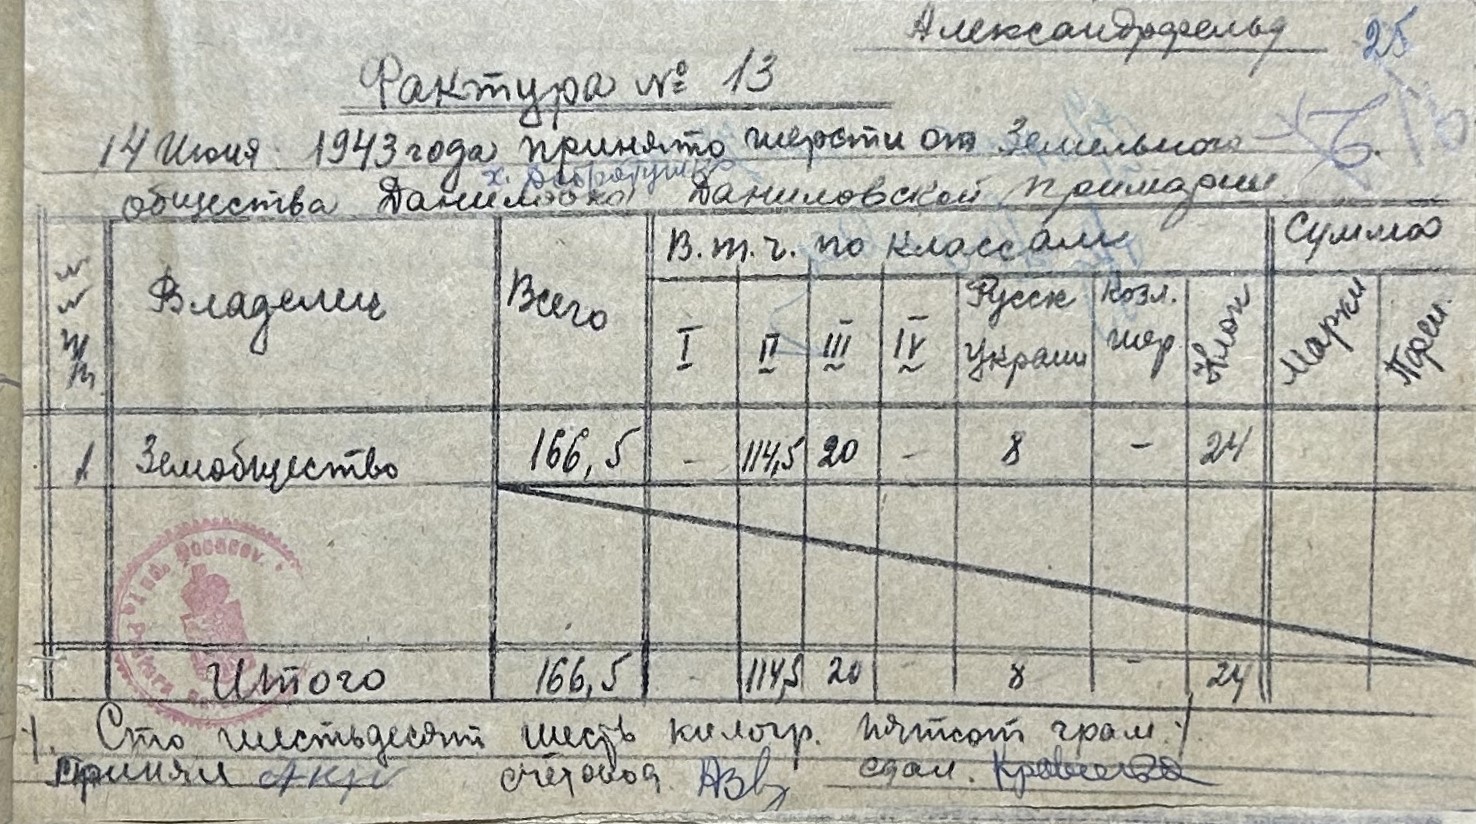 Александрфельд 25
Фактура № 13
14 Июня 1943 года принято шерсти от Земельного
х. Добратушка
общества Даниловка Даниловской примарии
№№ п/п Владелец Всего В.т.ч. по классам Сумма
I II III IV Русск Украин Козл. шер Клок Марки Пфен.
1 Земобщество 166,5 - 114,5 20 - 8 - 24
Jud. Oceacov.
Итого 166,5 - 114,5 20 - 8 - 24
/. Сто шестьдесят шесть килогр. пятсот грам./.
Принял счетовод сдал.